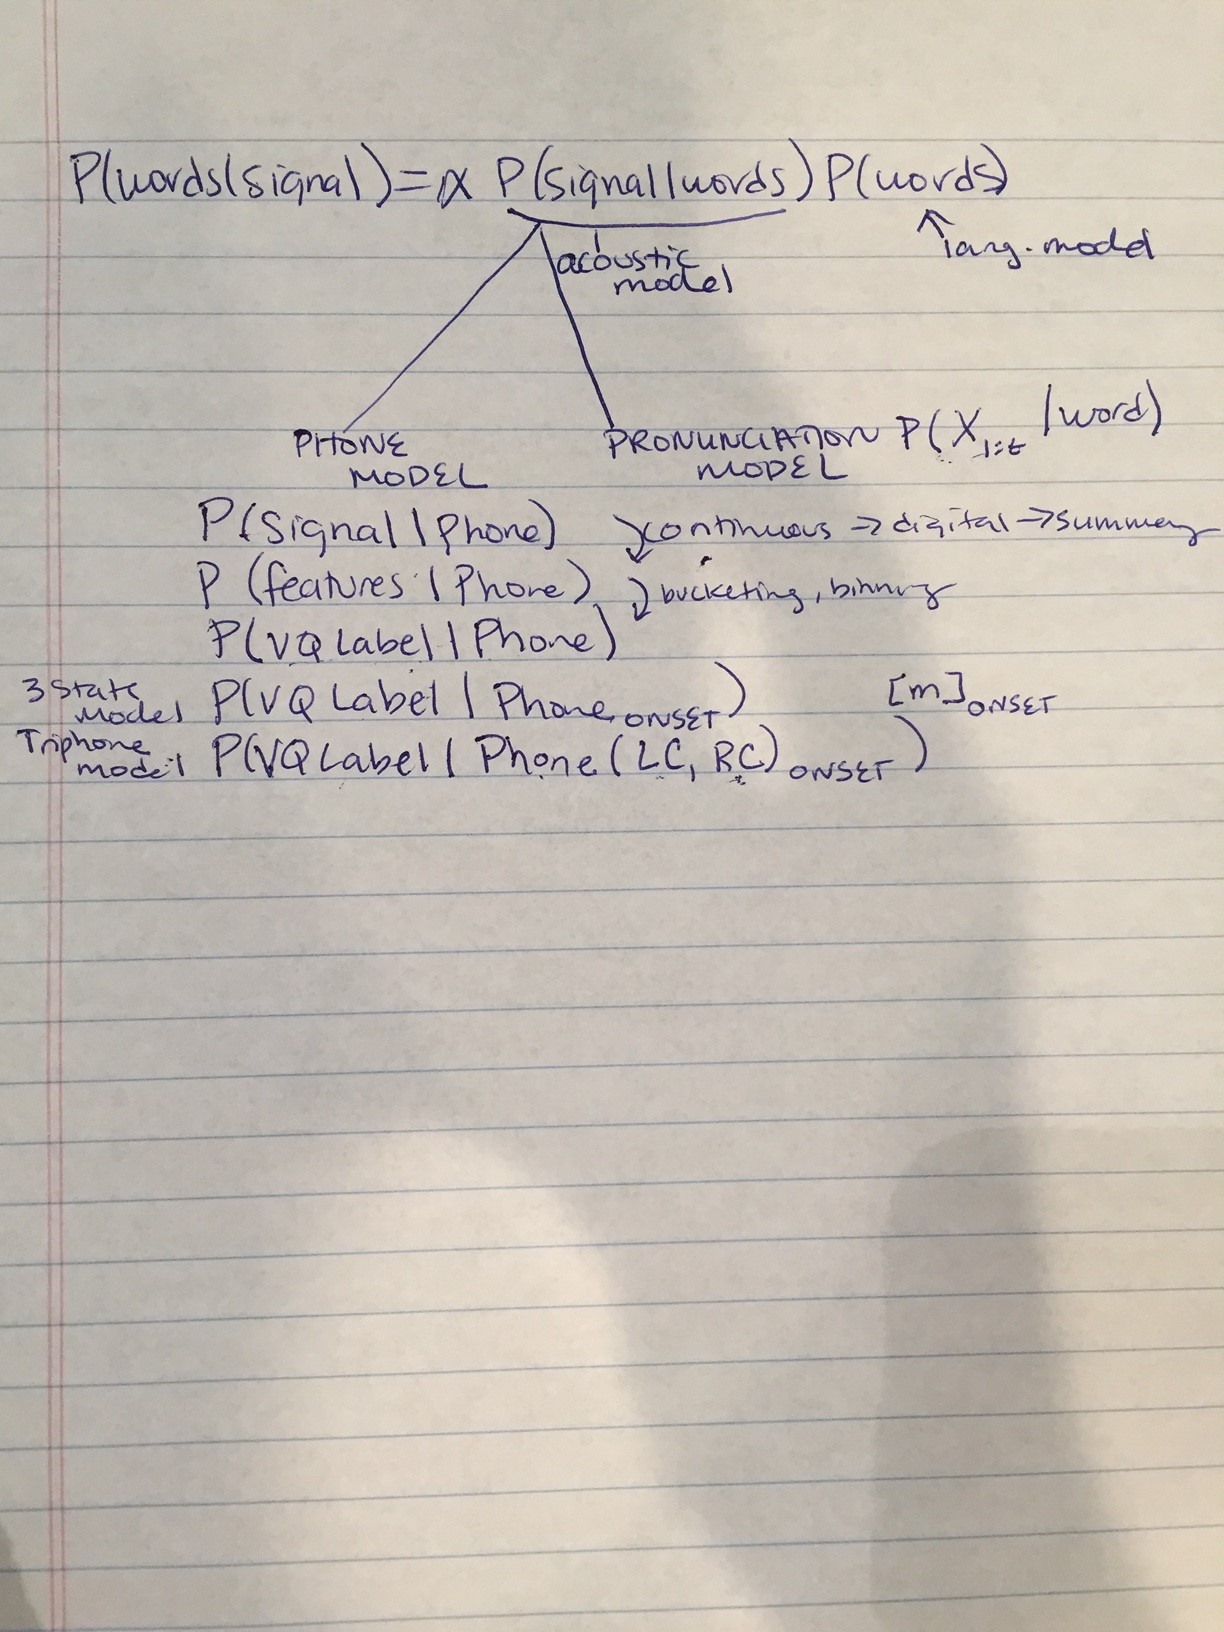 P(words|signal) = α P(signal|words) P(words)
lang. model
acoustic
model
PHONE
MODEL
PRONUNCIATION P(X₁:t |word)
MODEL
P(signal | phone) continuous → digital → summary
P (features | Phone) bucketing, binning
P(VQ Label | Phone)
3 state
model P(VQ Label | Phone ONSET) [m] ONSET
Triphone
model P(VQ Label | Phone (LC, RC) ONSET )